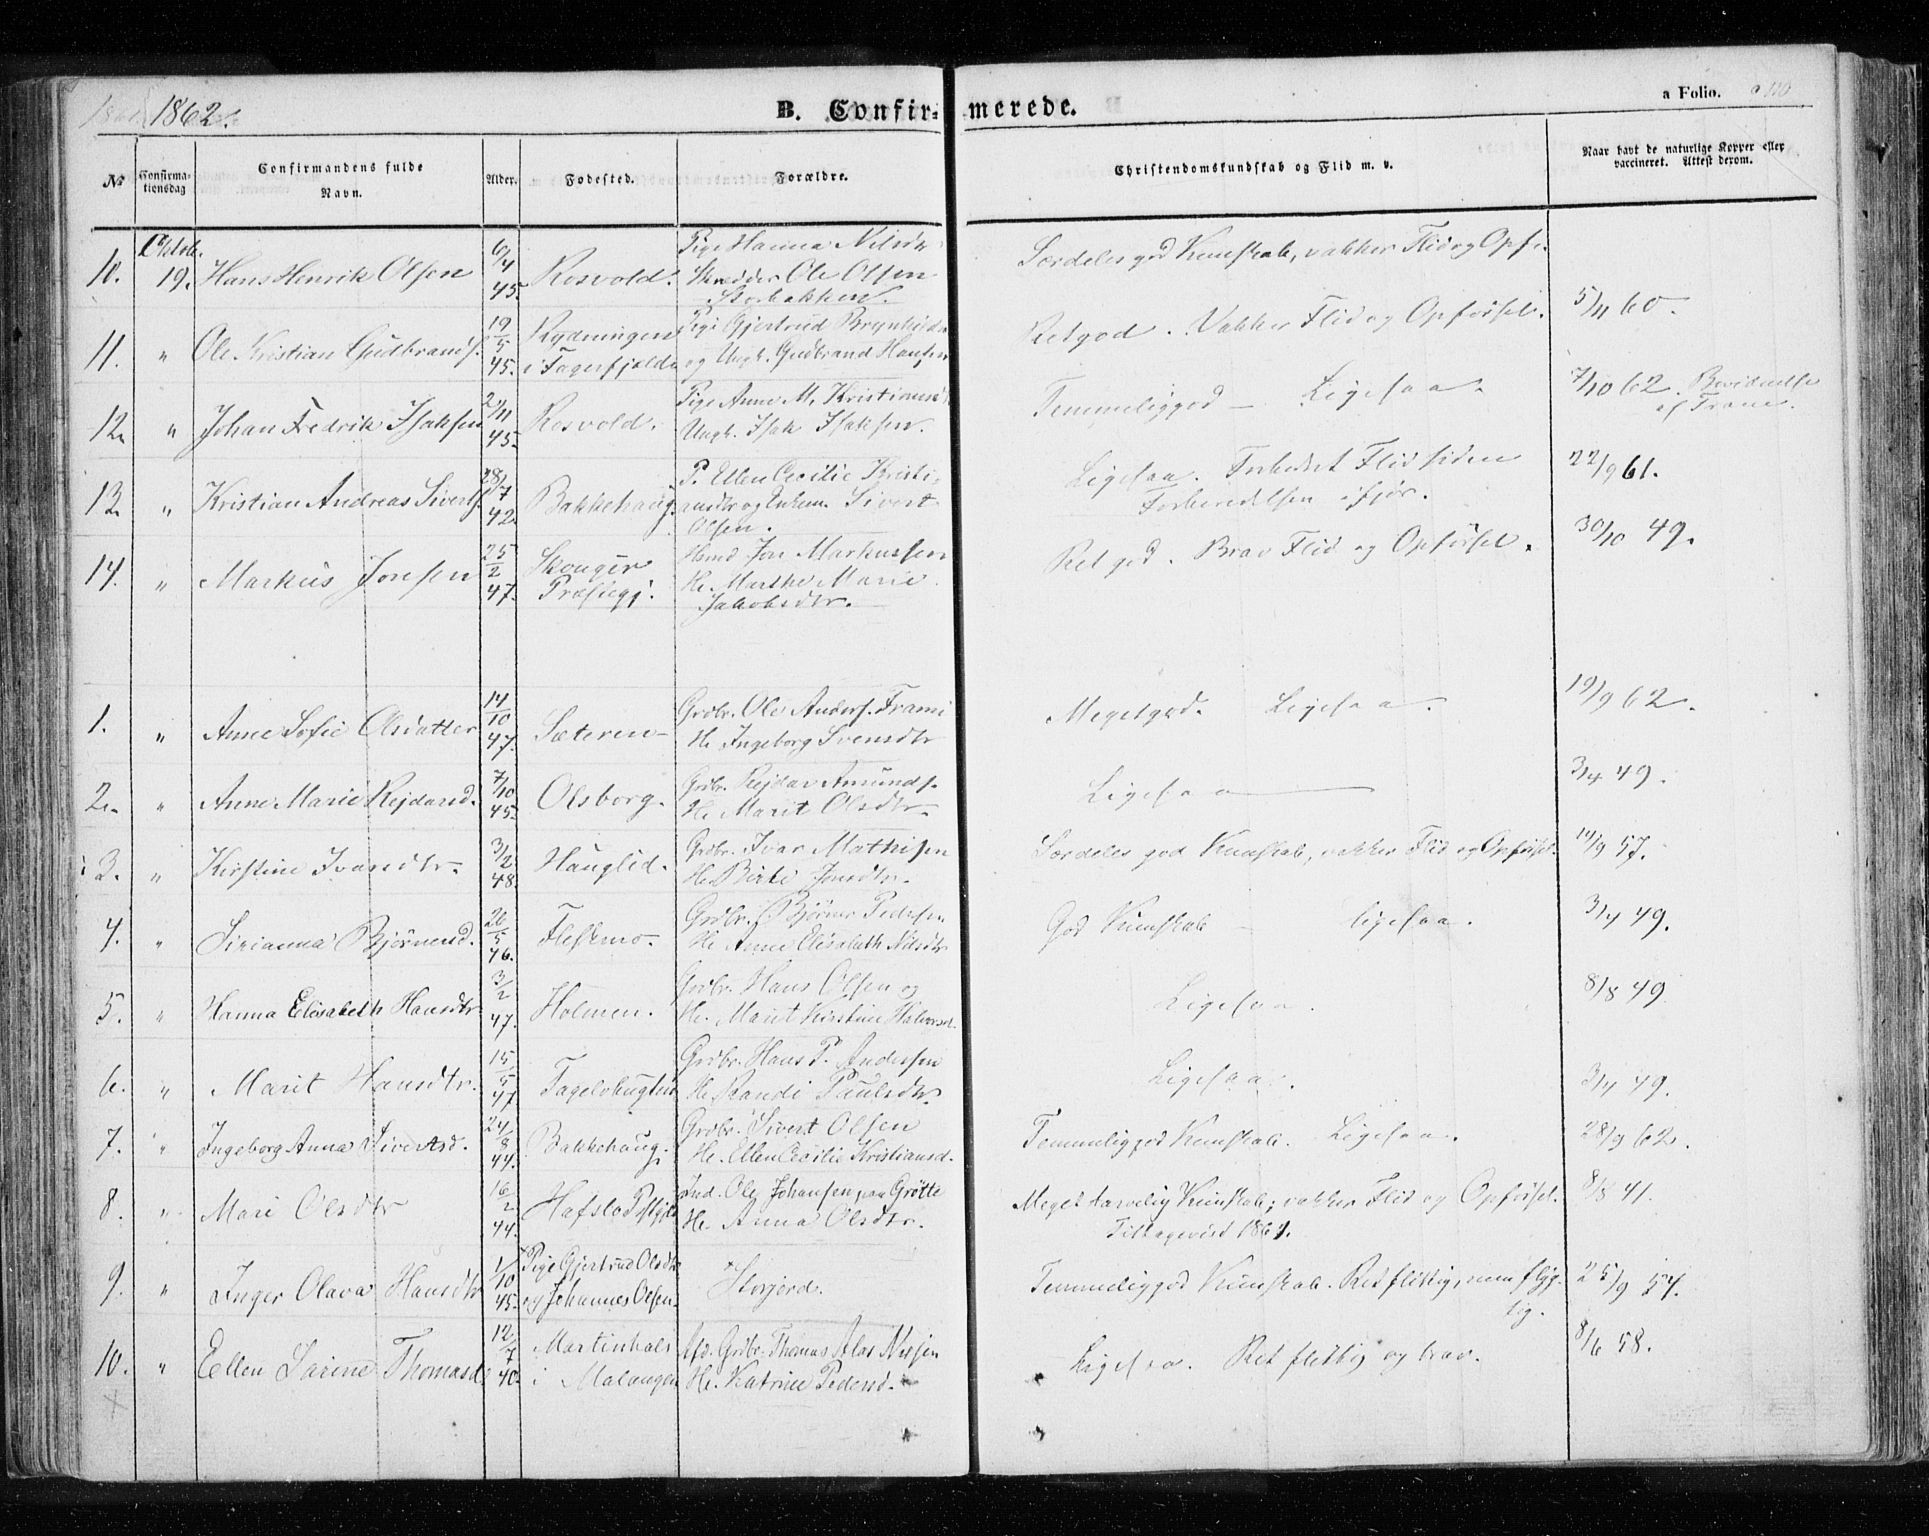 1862.
B. Confirmerede.
a Folio.
No
Confirmationsdag
Confirmandens fulde Navn.
Alder.
Fødested.
Forældre.
Christendomskundskab og Flid m. v.
Naar havt de naturlige Kopper eller vaccineret. Attest derom.
10. Octob. 19. Hans Henrik Olsen 6/4 45. Rosvold. Pige Hanna Nilsdtr Skredder Ole Olsen Storbakken. Særdeles god Kunskab, vakker Flid og Opf.
11. " Ole Kristian Gudbrands. 19/5 45. Rydningen i Fagerfjeld Pige Gjertrud Brynhilds og Ungk. Gudbrand Hansen Retgod. Vakker Flid og Opførsel. 5/11 60.
12. " Johan Fedrik Isaksen 2/11 45. Rosvold. Pige Anne M. Kristiansd. Ungk. Isak Isaksen. Temmeliggod — Ligesaa. 7/10 62. Bevidnelse af Trane.
13. " Kristian Andreas Siverts. 28/7 42. Bakkehaug. P. Ellen Cecilie Kristiansdtr og Enkem. Sivert Olsen. Ligesaa. Forbedret Flid siden Forberedelsen ifjor. 22/9 61.
14. " Markus Jonsen 25/2 47. Skouger Præstegj. Hsmd Jon Markussen He. Marthe Marie Jakobsdtr. Ret god. Brav Flid og Opførsel. 30/10 49.
1. " Anne Sofie Olsdatter 14/10 47. Sæteren Grdbr. Ole Anders. Frami He Ingeborg Svensdtr Megetgod. Ligesaa. 19/9 62.
2. " Anne Marie Rejdarsd. 7/10 45. Olsborg. Grdbr. Rejdar Amunds. He Marit Olsdtr. Ligesaa 3/4 49.
3. " Kirstine Ivarsdtr. 3/2 48. Hauglid. Grdbr. Ivar Mathisen He. Birte Jonsdtr. Særdeles god Kunskab, vakker Flid og Opførsel. 14/9 57.
4. " Sirianna Bjørnersd. 26/5 46. Fleskmo. Grdbr. Bjørner Pedersen He Anne Elisabeth Nilsdtr God Kunskab — ligesaa. 3/4 49.
5. " Hanna Elisabeth Hansdtr 3/2 47. Holmen. Grdbr. Hans Olsen og He. Marit Kirstine Halvorsd. Ligesaa. 8/8 49
6. " Marit Hansdtr. 15/5 47 Fagelvbugten Grdbr. Hans P. Andersen He Randi Paulsdtr. Ligesaa. 3/4 49.
7. " Ingeborg Anna Sivertsd. 24/8 44. Bakkehaug. Grdbr. Sivert Olsen He. Ellen Cecilie Kristiansd. Temmeliggod Kunskab. Ligesaa. 28/9 62.
8. " Mari Olsdtr 16/2 44. Hafslo Pstgjld Ind. Ole Johansen paa Grøtte He Anna Olsdtr. Meget tarvelig Kunskab, vakker Flid og Opførsel. Tilbagevist 1861. 8/8 41.
9. " Inger Olava Hansdtr 1/10 45. Pige Gjertrud Olsdtr og Johannes Olsen. Storjord. Temmeliggod Kunskab. Ret flittig, men flygtig. 25/9 54.
10. " Ellen Sarine Thomasd. 12/7 40. Martinhals i Malangen Afd. Grdbr. Thomas Alas Nilsen He. Katrine Pedersd. Ligesaa. Ret flittig og brav. 8/6 58.